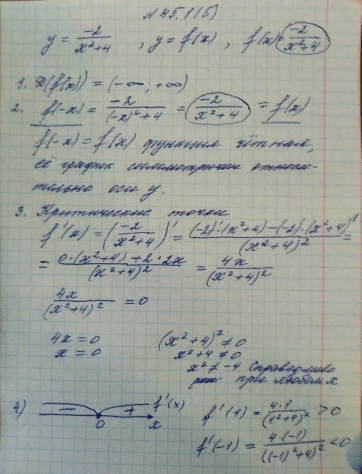 №45.1(б)
y = -2/(x²+4) , y = f(x) , f(x) = -2/(x²+4)
1. D(f(x)) = (-∞; +∞)
2. f(-x) = -2/((-x)²+4) = -2/(x²+4) = f(x)
f(-x) = f(x) функция чётная,
её график симметричен относи-
тельно оси y.
3. Критические точки
f'(x) = (-2/(x²+4))' = ((-2)'·(x²+4)-(-2)·(x²+4)')/(x²+4)² =
= (0·(x²+4)+2·2x)/(x²+4)² = 4x/(x²+4)²
4x/(x²+4)² = 0
4x = 0 (x²+4)² ≠ 0
x = 0 x²+4 ≠ 0
x² ≠ -4 Справедливо
при любом x
4) - + f'(x) f'(1) = 4·1/(1²+4)² > 0
0 x
f'(-1) = 4·(-1)/((-1)²+4)² < 0